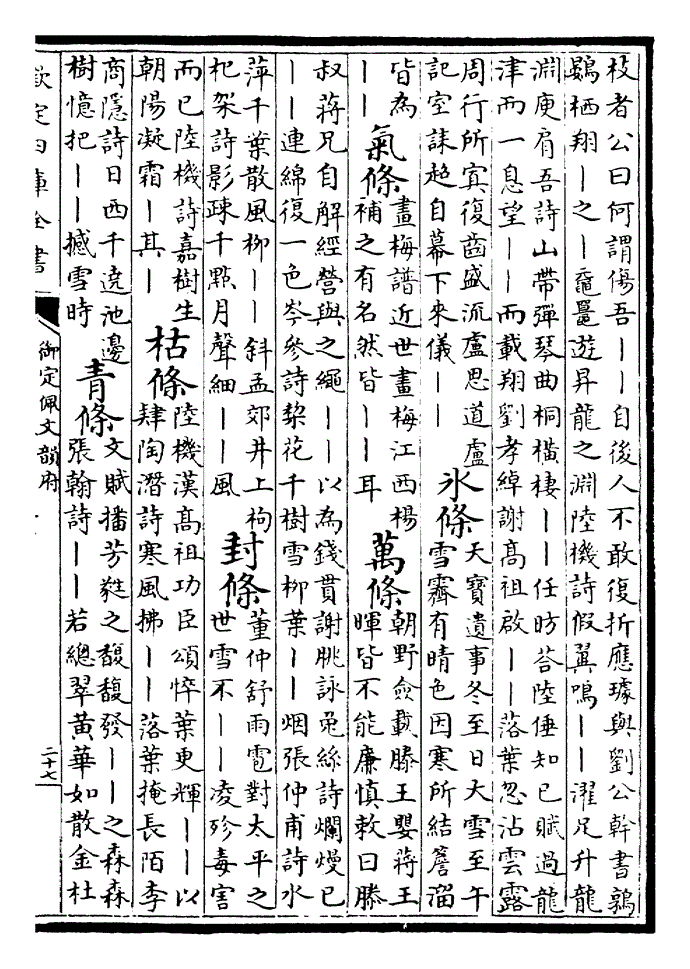 枝者公曰何謂傷吾丨丨自後人不敢復折應璩與劉公幹書鶉
鷃栖翔丨之丨黿鼉遊昇龍之淵陸機詩假翼鳴丨丨濯足升龍
淵庾肩吾詩山帶彈琴曲桐橫棲丨丨任昉荅陸倕知已賦過龍
津而一息望丨丨而載翔劉孝綽謝髙祖啟丨丨落葉忽沾雲露
周行所寘復齒盛流盧思道盧
記室誄趍自幕下來儀丨丨
氷條
天寶遺事冬至日大雪至午
雪霽有晴色因寒所結簷溜
皆為
丨丨
氣條
畫梅譜近世畫梅江西楊
補之有名然皆丨丨耳
萬條
朝野僉載滕王嬰蔣王
暉皆不能亷慎敕曰滕
叔蔣兄自解經營與之繩丨丨以為錢貫謝朓詠兎絲詩爛熳已
丨丨連綿復一色岑參詩棃花千樹雪柳葉丨丨烟張仲甫詩水
萍千葉散風柳丨丨斜孟郊井上枸
杞架詩影踈千㸃月聲細丨丨風
封條
董仲舒雨雹對太平之
世雪不丨丨凌殄毒害
而已陸機詩嘉樹生
朝陽凝霜丨其丨
枯條
陸機漢髙祖功臣頌悴葉更輝丨丨以
肆陶潛詩寒風拂丨丨落葉掩長陌李
商隱詩日西千遶池邊
樹憶把丨丨撼雪時
青條
文賦播芳蕤之馥馥發丨丨之森森
張翰詩丨丨若總翠黃華如散金杜
欽定四庫全書
御定佩文韻府
二十七